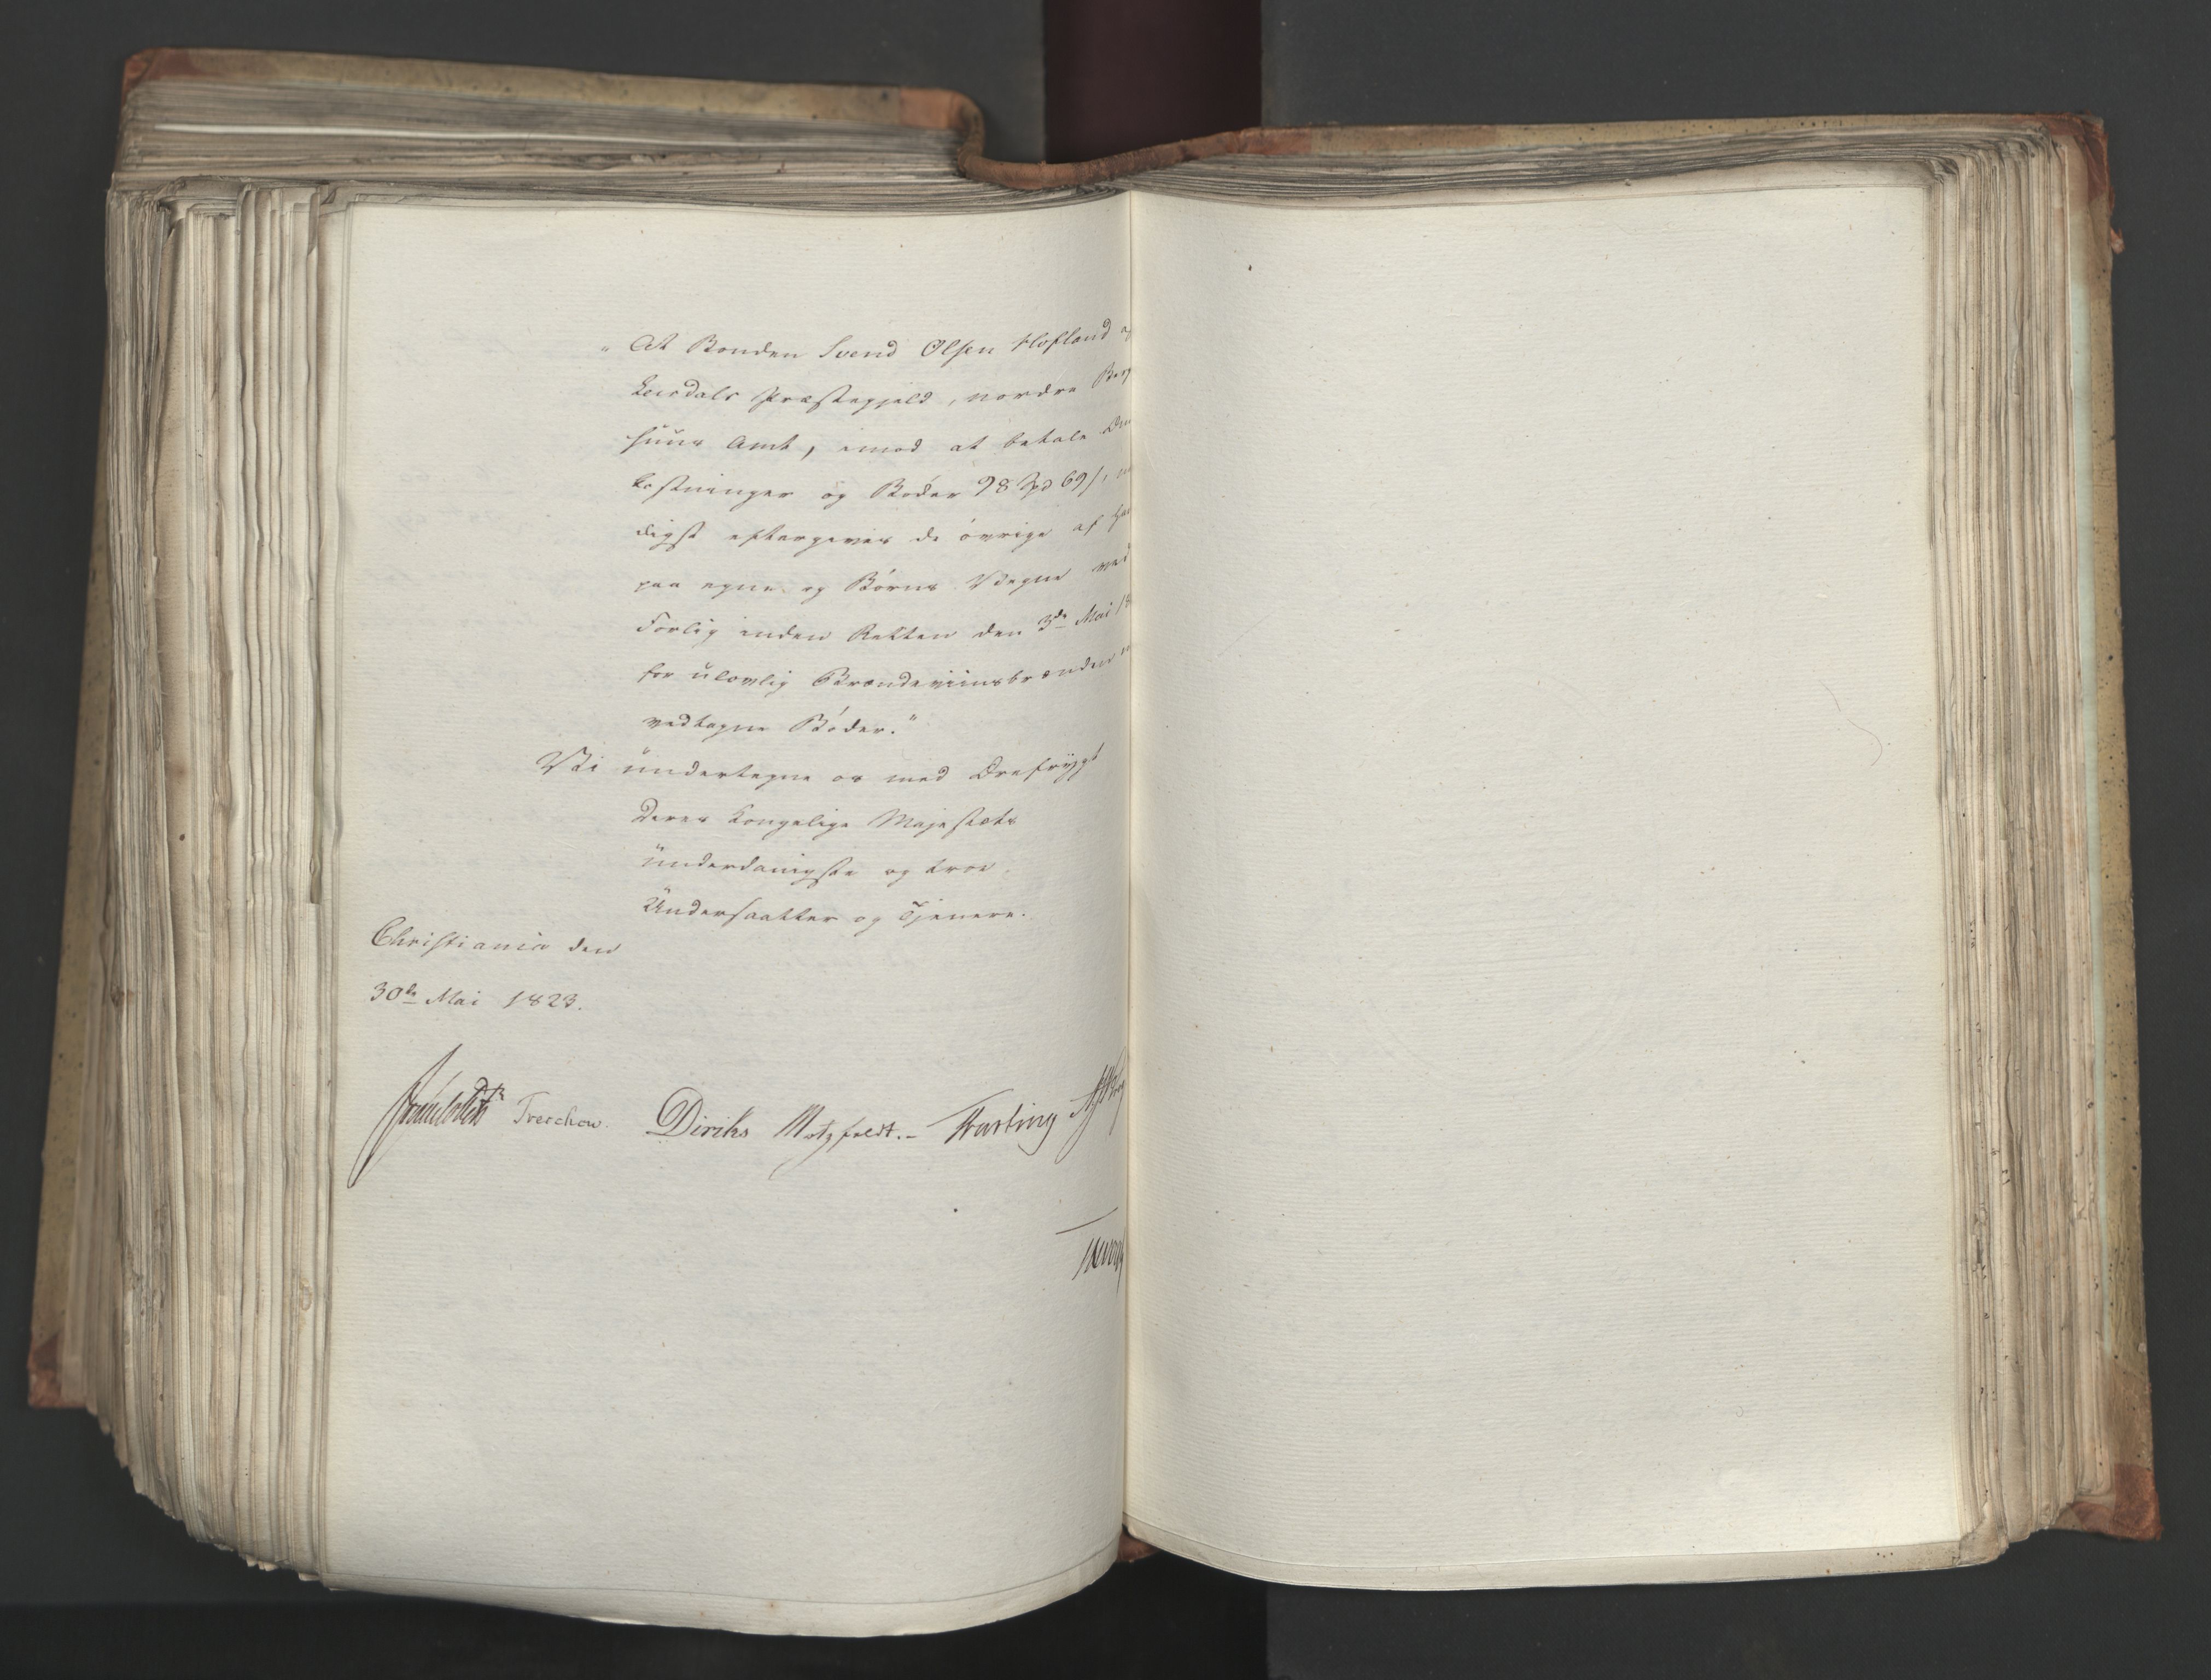 „At Bonden Svend Olsen Hofland
Leirdals Præstegjeld, nordre Berg
huus Amt, imod at betale Om
kostninger og Bøder 98 Spd 69 /,
digst eftergives de øvrige af ham
paa egne og Børns Vegne ved
Forlig inden Retten den 3de Mai 18
for ulovlig Brændeviinsbrænden
vedtagne Bøder."
Vi undertegne os med Ærefrygt
Deres Kongelige Majestæts
underdanigste og troe
Undersaatter og Tjenere.
Christiania den
30de Mai 1823.
Treschow. Diriks Motzfeldt.-